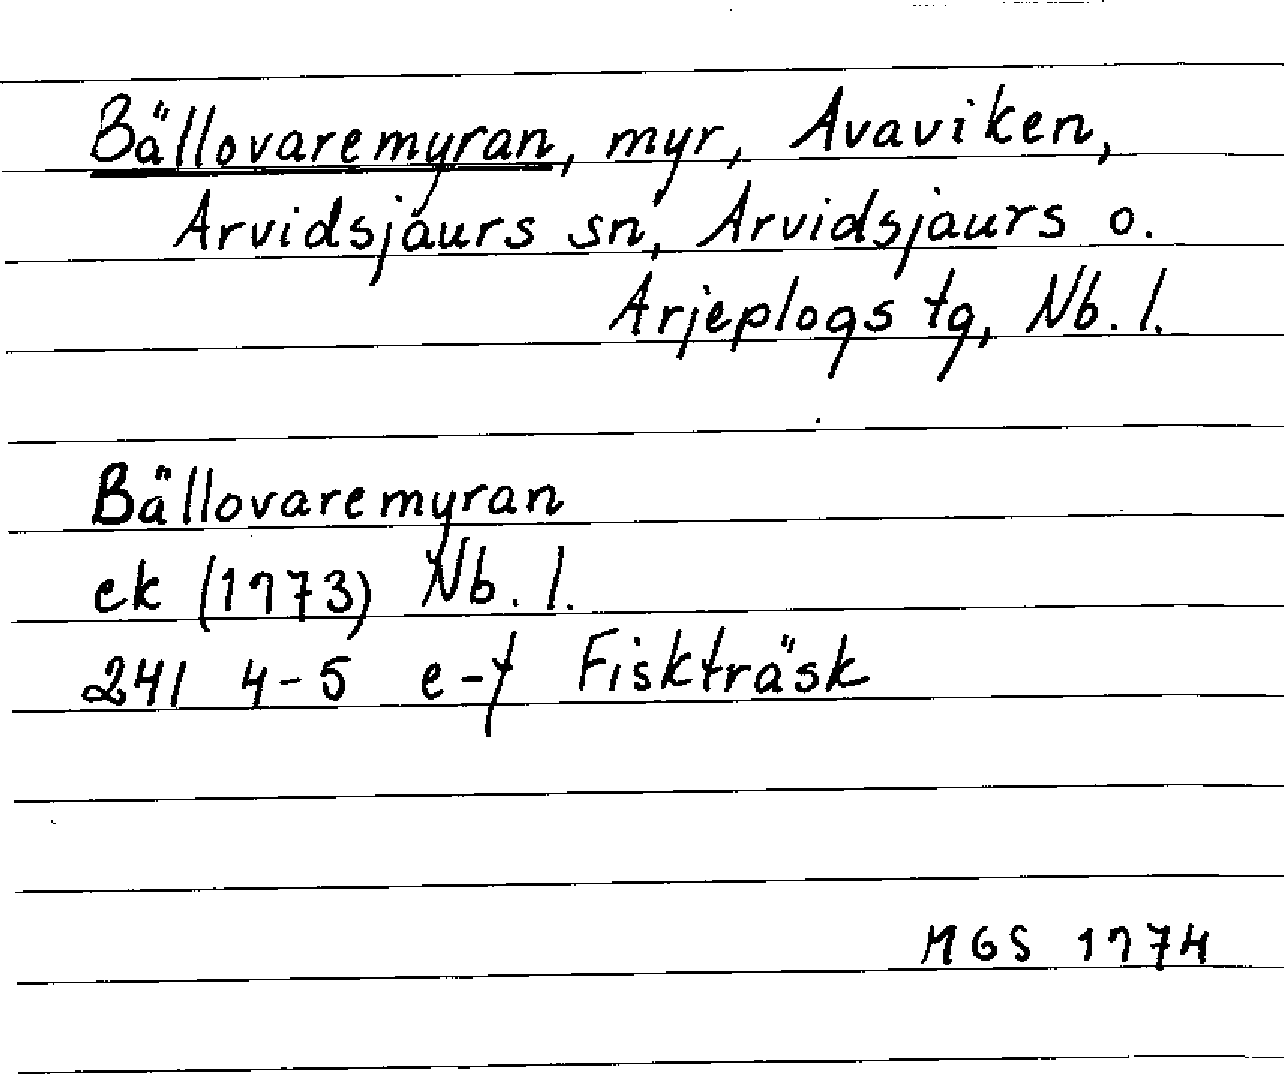 Bällovaremyran, myr, Avaviken,
Arvidsjaurs sn, Arvidsjaurs o.
Arjeplogs tg, Nb. l.
Bällovaremyran
ek (1973) Nb. l.
241 4-5 e-f Fiskträsk
MGS 1974